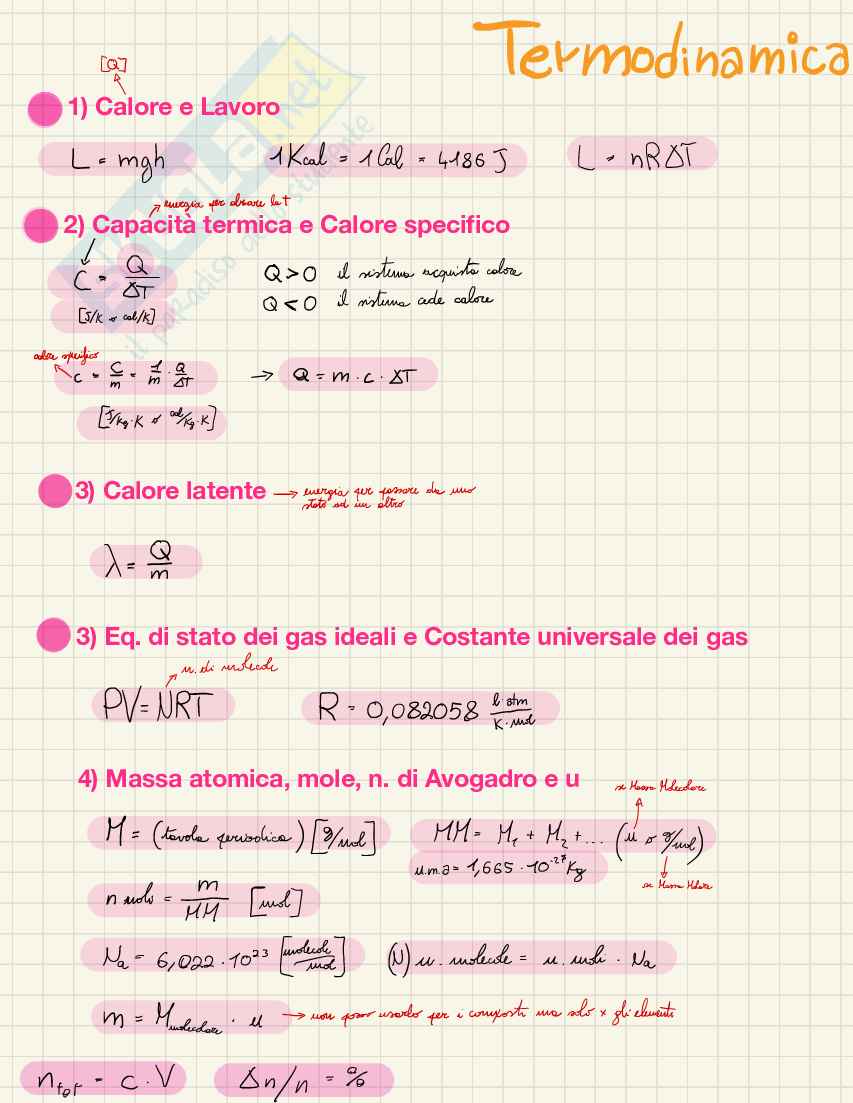 Termodinamica
[Q]
1) Calore e Lavoro
L = mgh
1 Kcal = 1 Cal = 4186 J
L = nRΔT
energia per alzare la t
2) Capacità termica e Calore specifico
C = Q/ΔT
[J/K o cal/K]
Q > 0 il sistema acquista calore
Q < 0 il sistema cede calore
calore specifico
c = C/m = 1/m · Q/ΔT
→ Q = m · c · ΔT
[J/Kg·K o cal/Kg·K]
3) Calore latente → energia per passare da uno
stato ad un altro
λ = Q/m
3) Eq. di stato dei gas ideali e Costante universale dei gas
n. di molecole
PV = NRT
R = 0,082058 l·atm/K·mol
4) Massa atomica, mole, n. di Avogadro e u
se Massa Molecolare
M = (tavola periodica) [g/mol]
MM = M₁ + M₂ + ... (u o g/mol)
u.m.a = 1,665 · 10⁻²⁷ Kg
se Massa Molare
n moli = m/MM [mol]
Na = 6,022 · 10²³ [molecole/mol]
(N) n. molecole = n. moli · Na
m = M molecolare · u → non posso usarlo per i composti ma solo x gli elementi
n tot = c · V
Δn/n = %
il paradiso dello studente